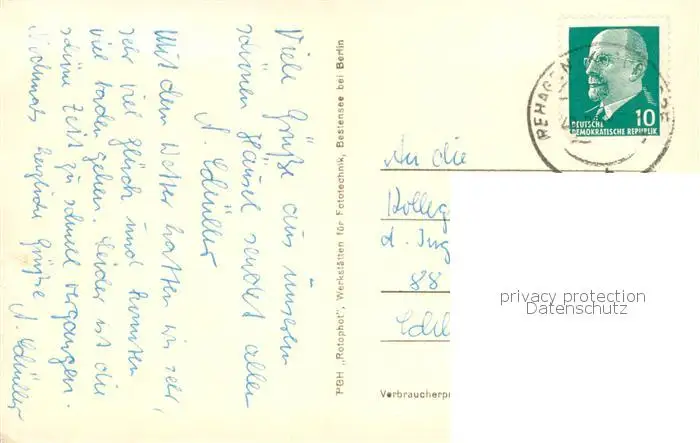 Viele Grüße aus unserem
schönen Häusel sendet allen
A. Schüller
Mit dem Wetter hatten wir sehr,
sehr viel Glück und konnten
viel baden gehen. Leider ist die
schöne Zeit zu schnell vergangen.
Nochmals herzliche Grüße A. Schüller
PGH „Rotophot", Werkstätten für Fototechnik, Bestensee bei Berlin
REHAG
10
DEUTSCHE
DEMOKRATISCHE REPUBLIK
An die
Kolleg
d. Ing
88
privacy protection
Datenschutz
Verbraucherpr